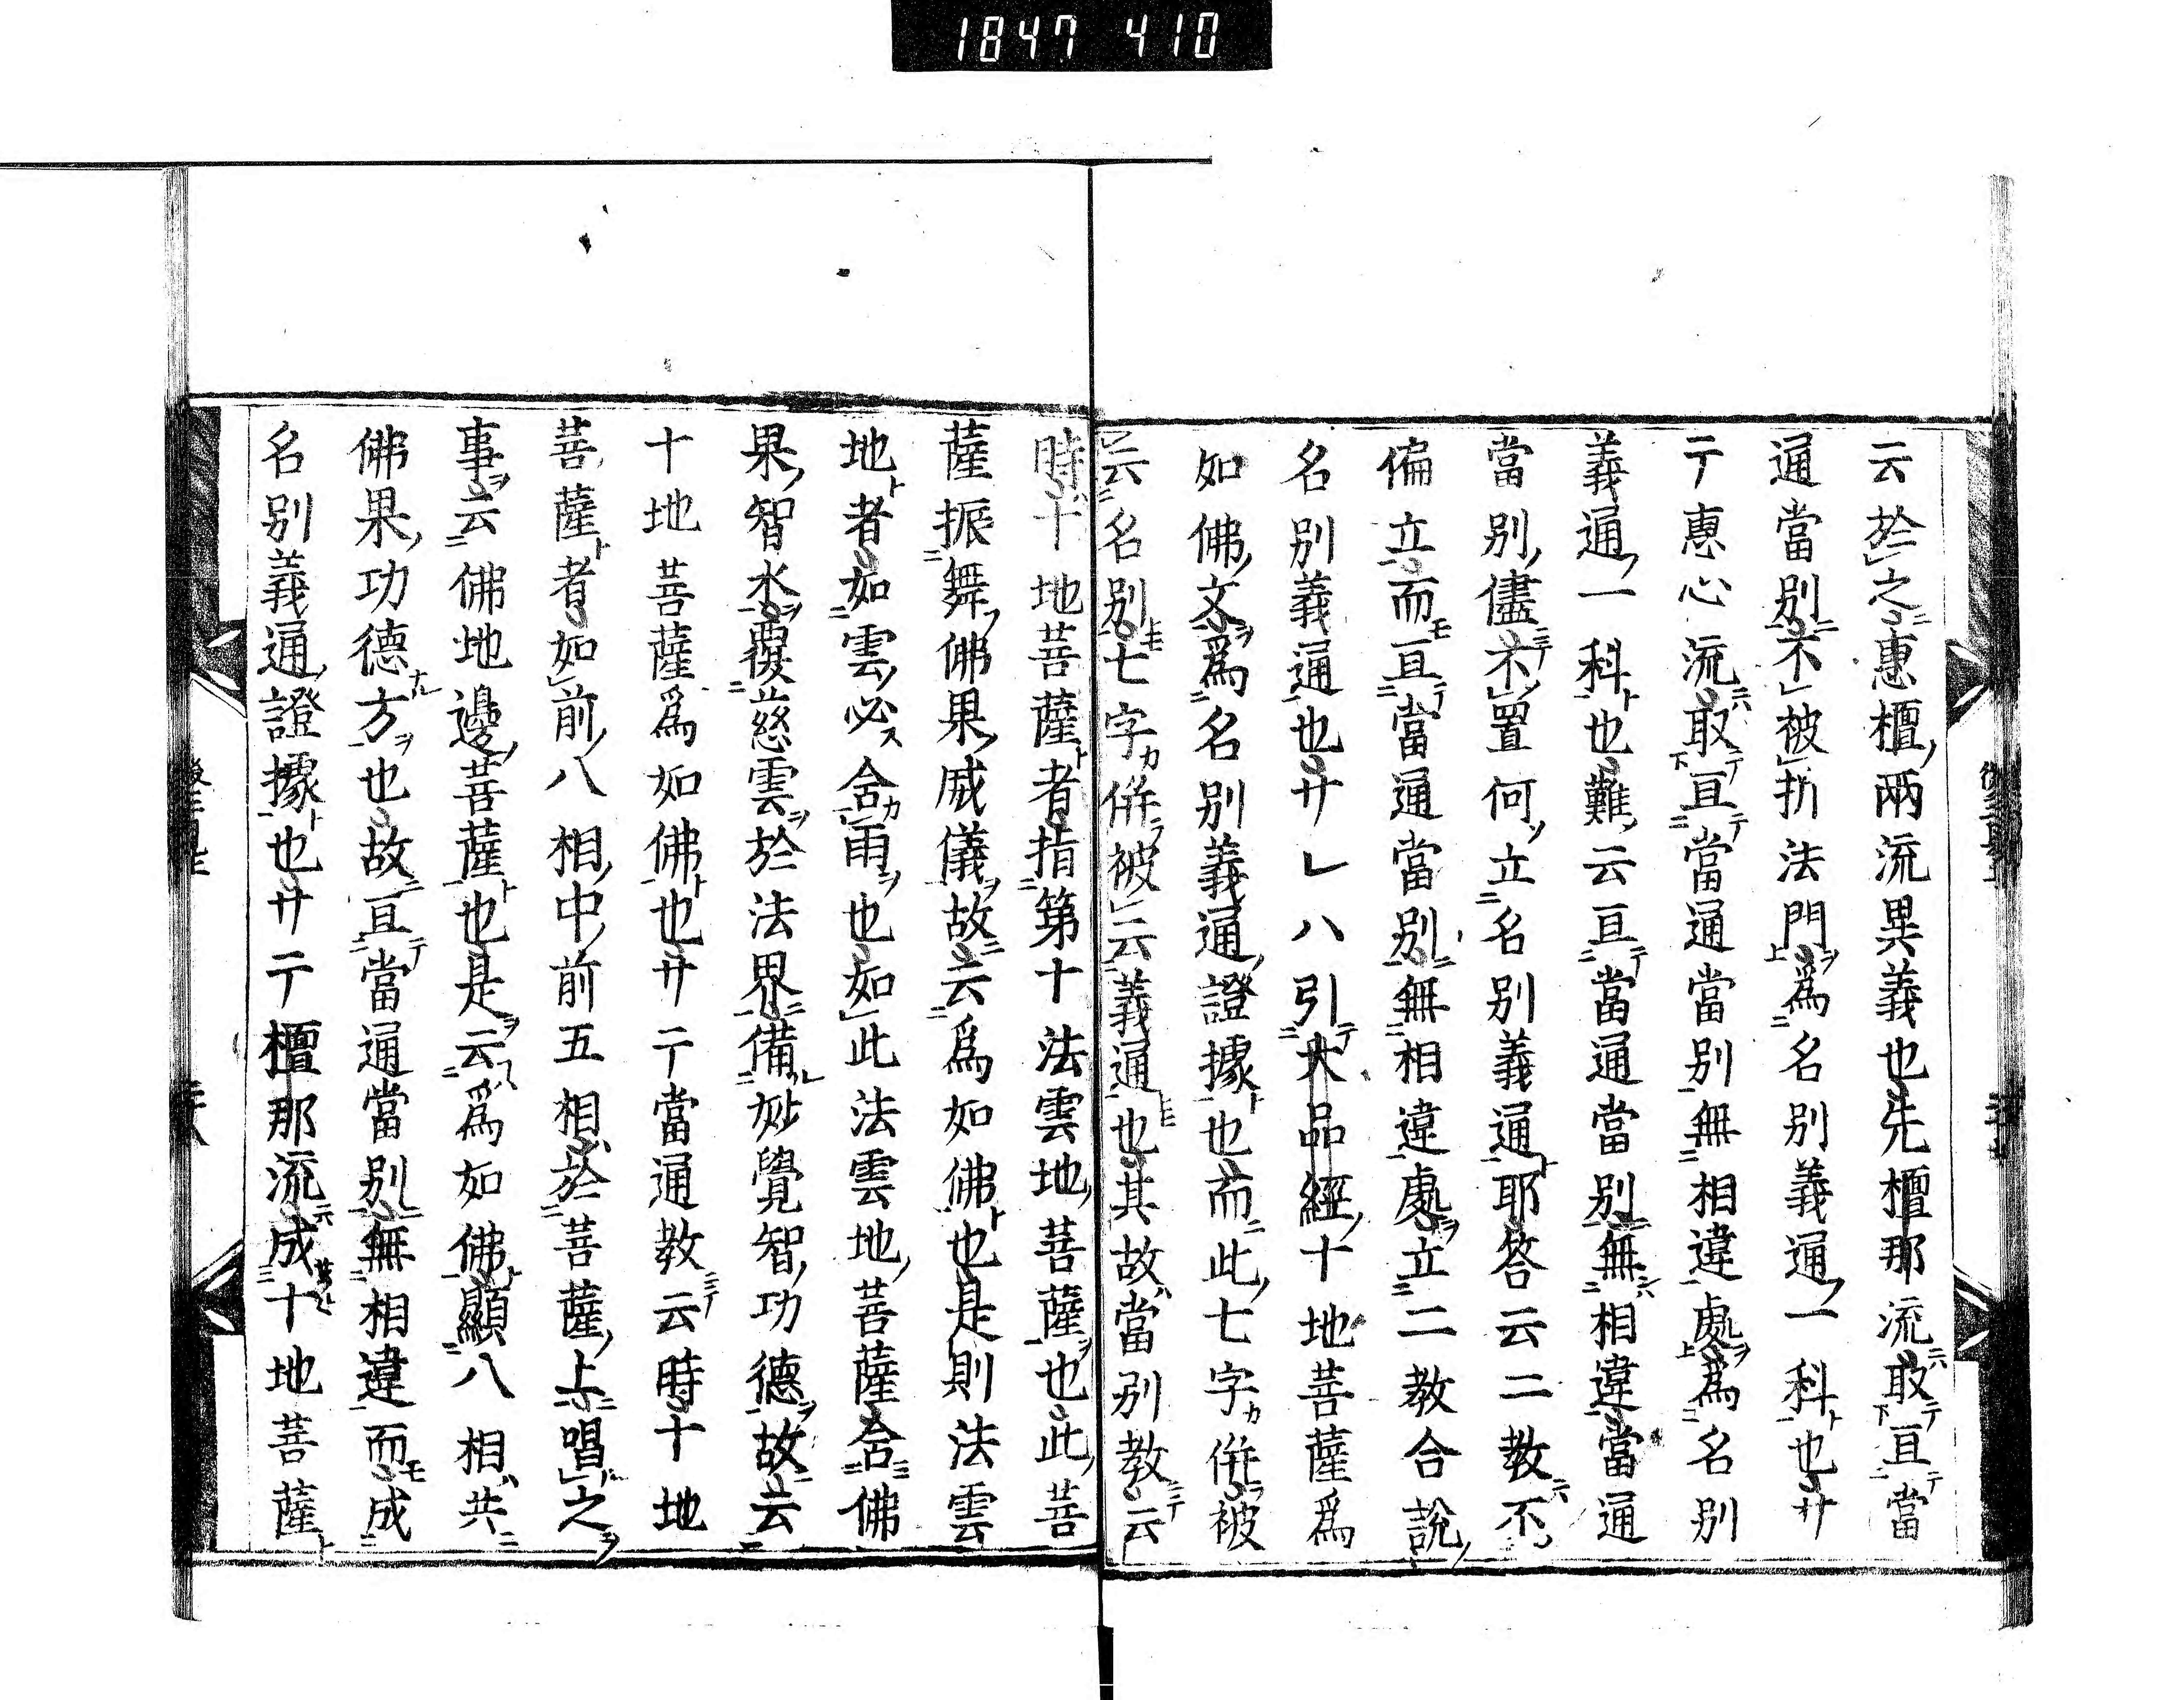 1847 410
云於之惠檀兩流異義也先檀那流取亘當
通當別不被折法門爲名別義通一科也サ
テ惠心流取亘當通當別無相違處爲名別
義通一科也難云亘當通當別無相違當通
當別儘不置何立名別義通耶答云二教不
偏立而亘當通當別無相違處立二教合說
名別義通也サレハ引大品經十地菩薩爲
如佛文爲名別義通證據也而此七字併被
云名別七字併被云義通也其故當別教云
時十地菩薩者指第十法雲地菩薩也此菩
薩振舞佛果威儀故云爲如佛也是則法雲
地者如雲必含雨也如此法雲地菩薩含佛
果智水覆慈雲於法界備妙覺智功德故云
十地菩薩爲如佛也サテ當通教云時十地
菩薩者如前八相中前五相於菩薩上唱之
事云佛地邊菩薩也是云爲如佛顯八相共
佛果功德方也故亘當通當別無相違而成
名別義通證據也サテ檀那流成十地菩薩